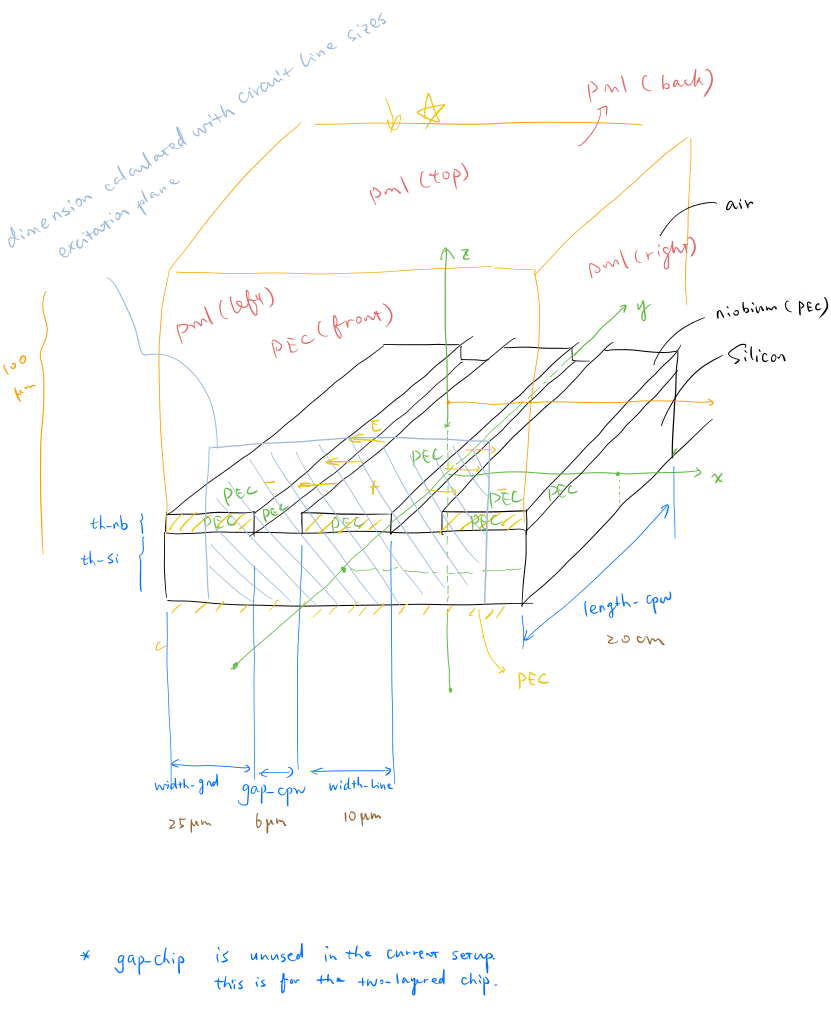 dimension calculated with circuit line sizes
excitation plane
pml (back)
pml (top)
air
pml (right)
z
pml (left)
PEC (front)
y
niobium (PEC)
Silicon
100
μm
E
PEC
x
PEC
PEC
PEC
PEC
th-nb
PEC
PEC
PEC
th-si
length-cpw
20cm
PEC
width-gnd
gap-cpw
width-line
25μm
6μm
10μm
* gap-chip is unused in the current setup
this is for the two-layered chip.